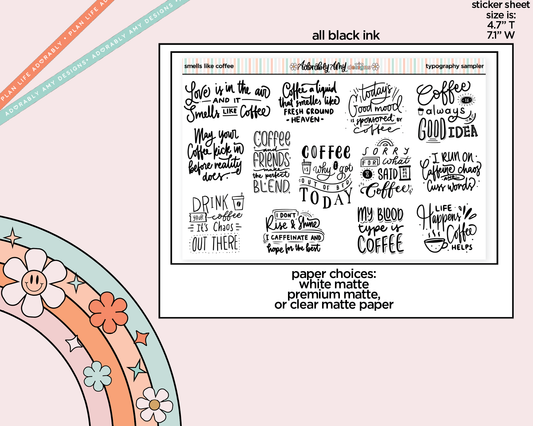 sticker sheet
size is:
4.7" T
7.1" W
PLAN LIFE ADORABLY • PLAN LIFE ADORABLY
ADORABLY AMY DESIGNS • ADORABLY AMY
all black ink
smells like coffee
Adorably Amy designs
typography sampler
Love is in the air
AND IT
Smells LIKE Coffee
Coffee a liquid
that smells like
FRESH GROUND
- HEAVEN -
Today's
Good mood
is sponsored by
coffee
Coffee
is always a
GOOD IDEA
May your
Coffee kick in
before reality
does
COFFEE
and
FRIENDS
MAKE the
perfect
BLEND.
COFFEE
is why I got
OUT OF BED
TODAY
SORRY
FOR what
I SAID
before
Coffee
I RUN ON
Caffeine chaos
& Cuss words
DRINK
YOUR coffee
It's Chaos
OUT THERE
I DON'T
Rise & Shine
I CAFFEINATE AND
hope for the best
MY BLOOD
type is
COFFEE
LIFE
Happens
Coffee
HELPS
paper choices:
white matte
premium matte,
or clear matte paper